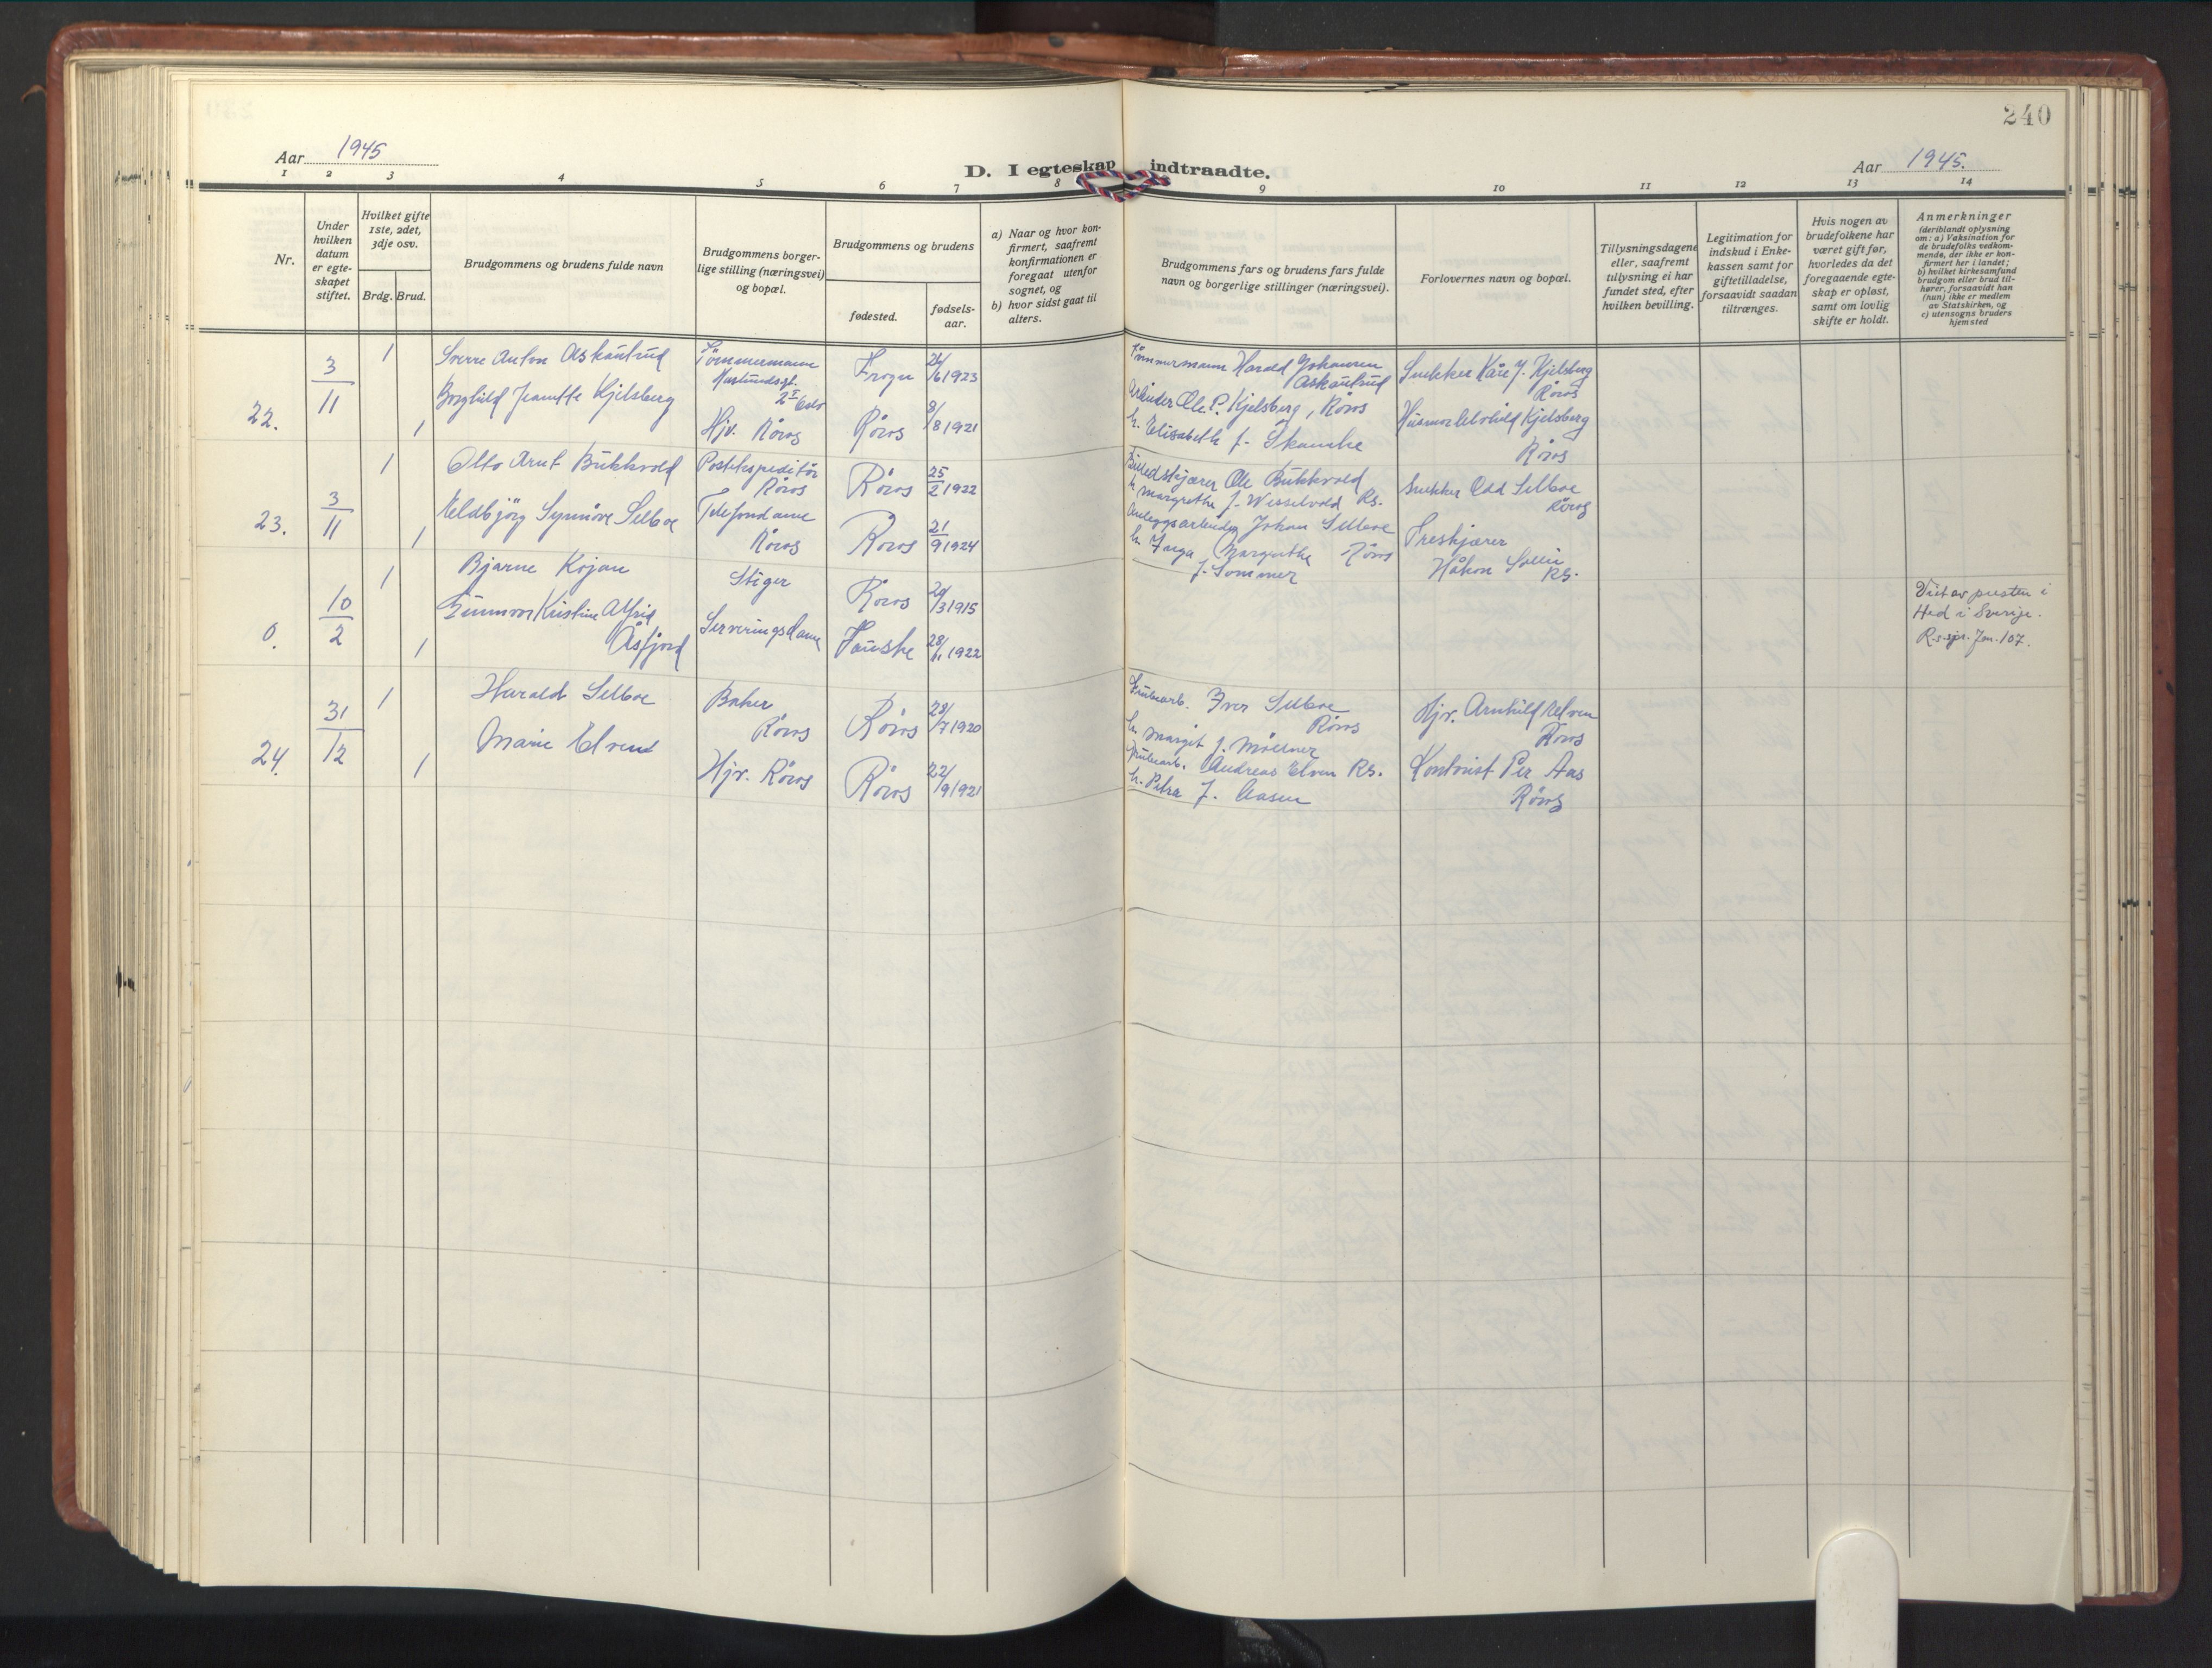 240
Aar 1945
D. I egteskap indtraadte.
Aar 1945.
1 2 3 4 5 6 7 8 9 10 11 12 13 14
Nr.
Under
hvilken
datum
er egte-
skapet
stiftet.
Hvilket gifte
1ste, 2det,
3dje osv.
Brdg. Brud.
Brudgommens og brudens fulde navn
Brudgommens borger-
lige stilling (næringsvei)
og bopæl.
Brudgommens og brudens
fødested.
fødsels-
aar.
a) Naar og hvor kon-
firmert, saafremt
konfirmationen er
foregaat utenfor
sognet, og
b) hvor sidst gaat til
alters.
Brudgommens fars og brudens fars fulde
navn og borgerlige stillinger (næringsvei).
Forlovernes navn og bopæl.
Tillysningsdagene
eller, saafremt
tillysning ei har
fundet sted, efter
hvilken bevilling.
Legitimation for
indskud i Enke-
kassen samt for
giftetilladelse,
forsaavidt saadan
tiltrænges.
Hvis nogen av
brudefolkene har
været gift før,
hvorledes da det
foregaaende egte-
skap er opløst,
samt om lovlig
skifte er holdt.
Anmerkninger
(deriblandt oplysning
om: a) Vaksination for
de brudefolks vedkom-
mende, der ikke er kon-
firmert her i landet;
b) hvilket kirkesamfund
brudgom eller brud til-
hører, forsaavidt han
(hun) ikke er medlem
av Statskirken, og
c) utensogns bruders
hjemsted
22.
3/11
1
1
Sverre Anton Askautrud
Borghild Jeanette Kjelsberg
Tömmermann
2 I Oslo
Hjv. Röros
Frogn
Röros
/6 1923
8/8 1921
Tömmermann Harald Johansen
Askautrud
Arbeider Ole P. Kjelsberg, Röros
h. Elisabeth f. Skanche
Snekker Kåre J. Kjelsberg
Röros
Husmor Kjelsberg
Röros
23.
3/11
1
1
Otto Arnt Bukkvold
Eldbjörg Synnöve Selboe
Postekspeditör
Röros
Telefondame
Röros
Röros
Röros
25/2 1922
21/9 1924
Billedskjærer Ole Bukkvold
h. Margrethe f. Wesselvold Rs.
Anleggsarbeider Johan Selboe
h. Inga Margrethe Röros
f. Sommer
Snekker Odd Selboe
Röros
Treskjærer
Håkon
Rs.
0.
10/2
1
1
Bjarne Kojan
Gunnvor Kristine Alfrid
Åsfjord
Stiger
Serveringsdame
Röros
Fauske
/3 1915
28/11 1922
Viet av presten i
Hed i Sverige.
R.s. Jan. 107.
24.
31/12
1
1
Harald Selboe
Marie Elven
Baker
Röros
Hjv. Röros
Röros
Röros
28/7 1920
22/9 1921
Grubearb. Iver Selboe
Röros
h. Margit f.
Grubearb. Andreas Elven Rs.
h. Petra f. Aasen
Hjv. Arnhild Elven
Röros
Kontorist Per Aas
Röros